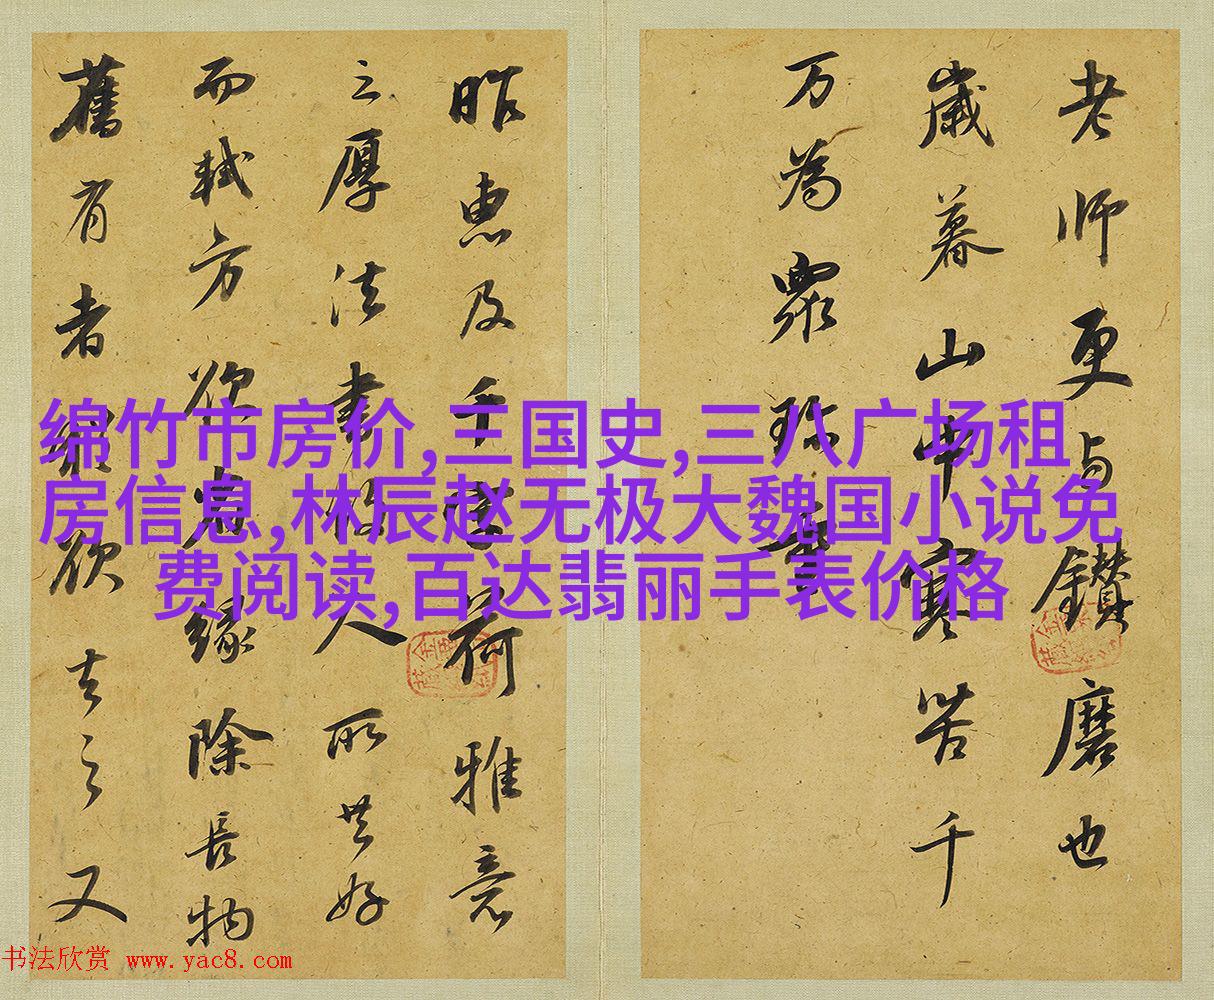 老师更与鑽磨也
歲暮山中寒苦千
万為眾珍重
昨惠及千荷雅意
之厚法書人所共好
而軾方欲緣除長物
舊有者欲去之又
绵竹市房价,三国史,三八广场租
房信息,林辰赵无极大魏国小说免
费阅读,百达翡丽手表价格
书法欣赏 www.yac8.com